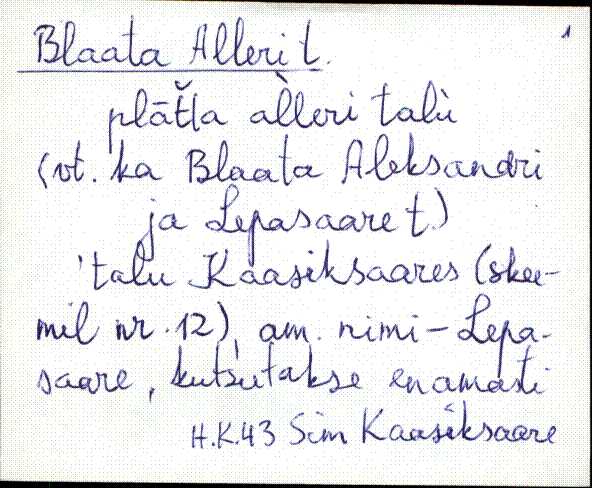 1
Blaata Alleri t.
plāt̆t̆a àlleri talù
(vt. ka Blaata Aleksandri
ja Lepasaare t.)
'talu Kaasiksaares (skee-
mil nr. 12), am. nimi - Lepa-
saare, kutsutakse enamasti
H.K.43 Sim Kaasiksaare